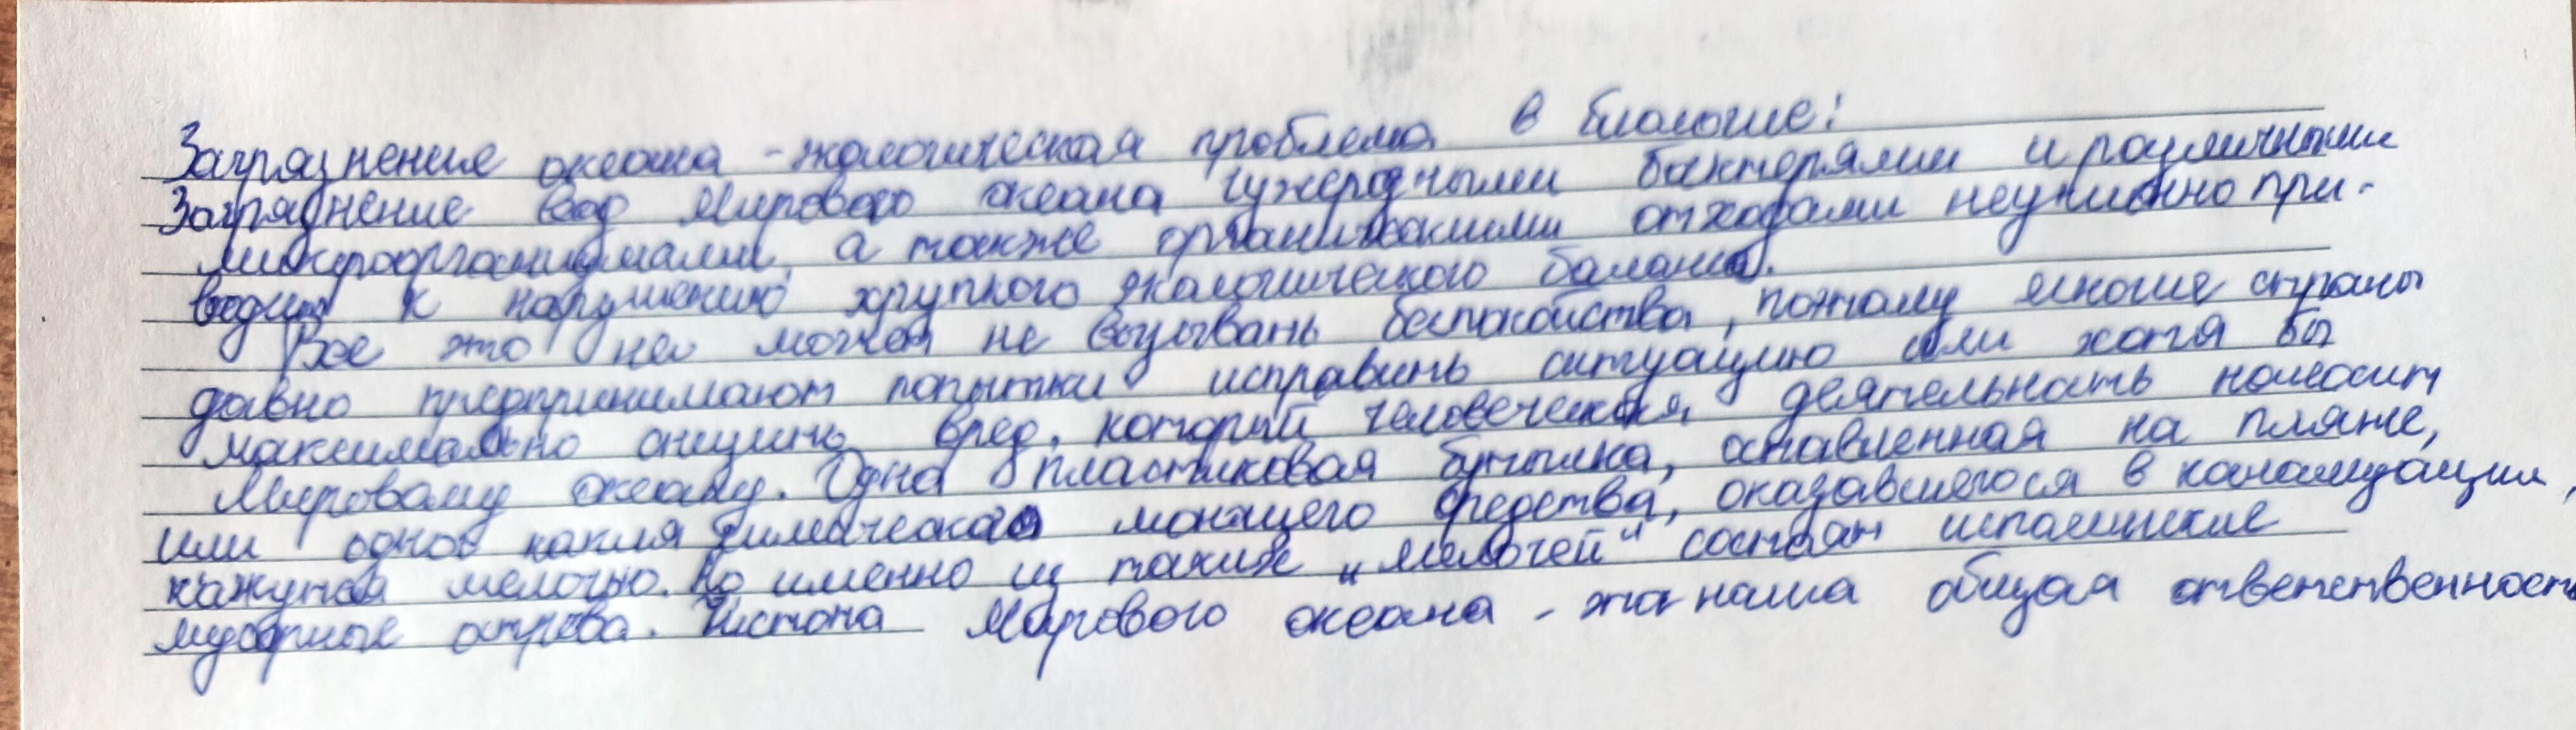 Загрязнение океана - экологическая проблема в биологие:
Загрязнение вод Мирового океана чужеродными бактерями и различными
микроорганизмами, а также органическими отходами неуклонно при-
водит к нарушению хрупкого экологического баланса.
Все это не может не вызывать беспокойства, поэтому многие страны
давно предпринимают попытки исправить ситуацию или хотя бы
максимально снизить вред, который человеческая деятельность наносит
Мировому океану. Одна пластиковая бутылка, оставленная на пляже,
или одна капля химического моющего средства, оказавшегося в канализации,
кажутся мелочью. Но именно из таких „мелочей“ состоят исполинские
мусорные острова. Чистота Мирового океана - это наша общая ответственность